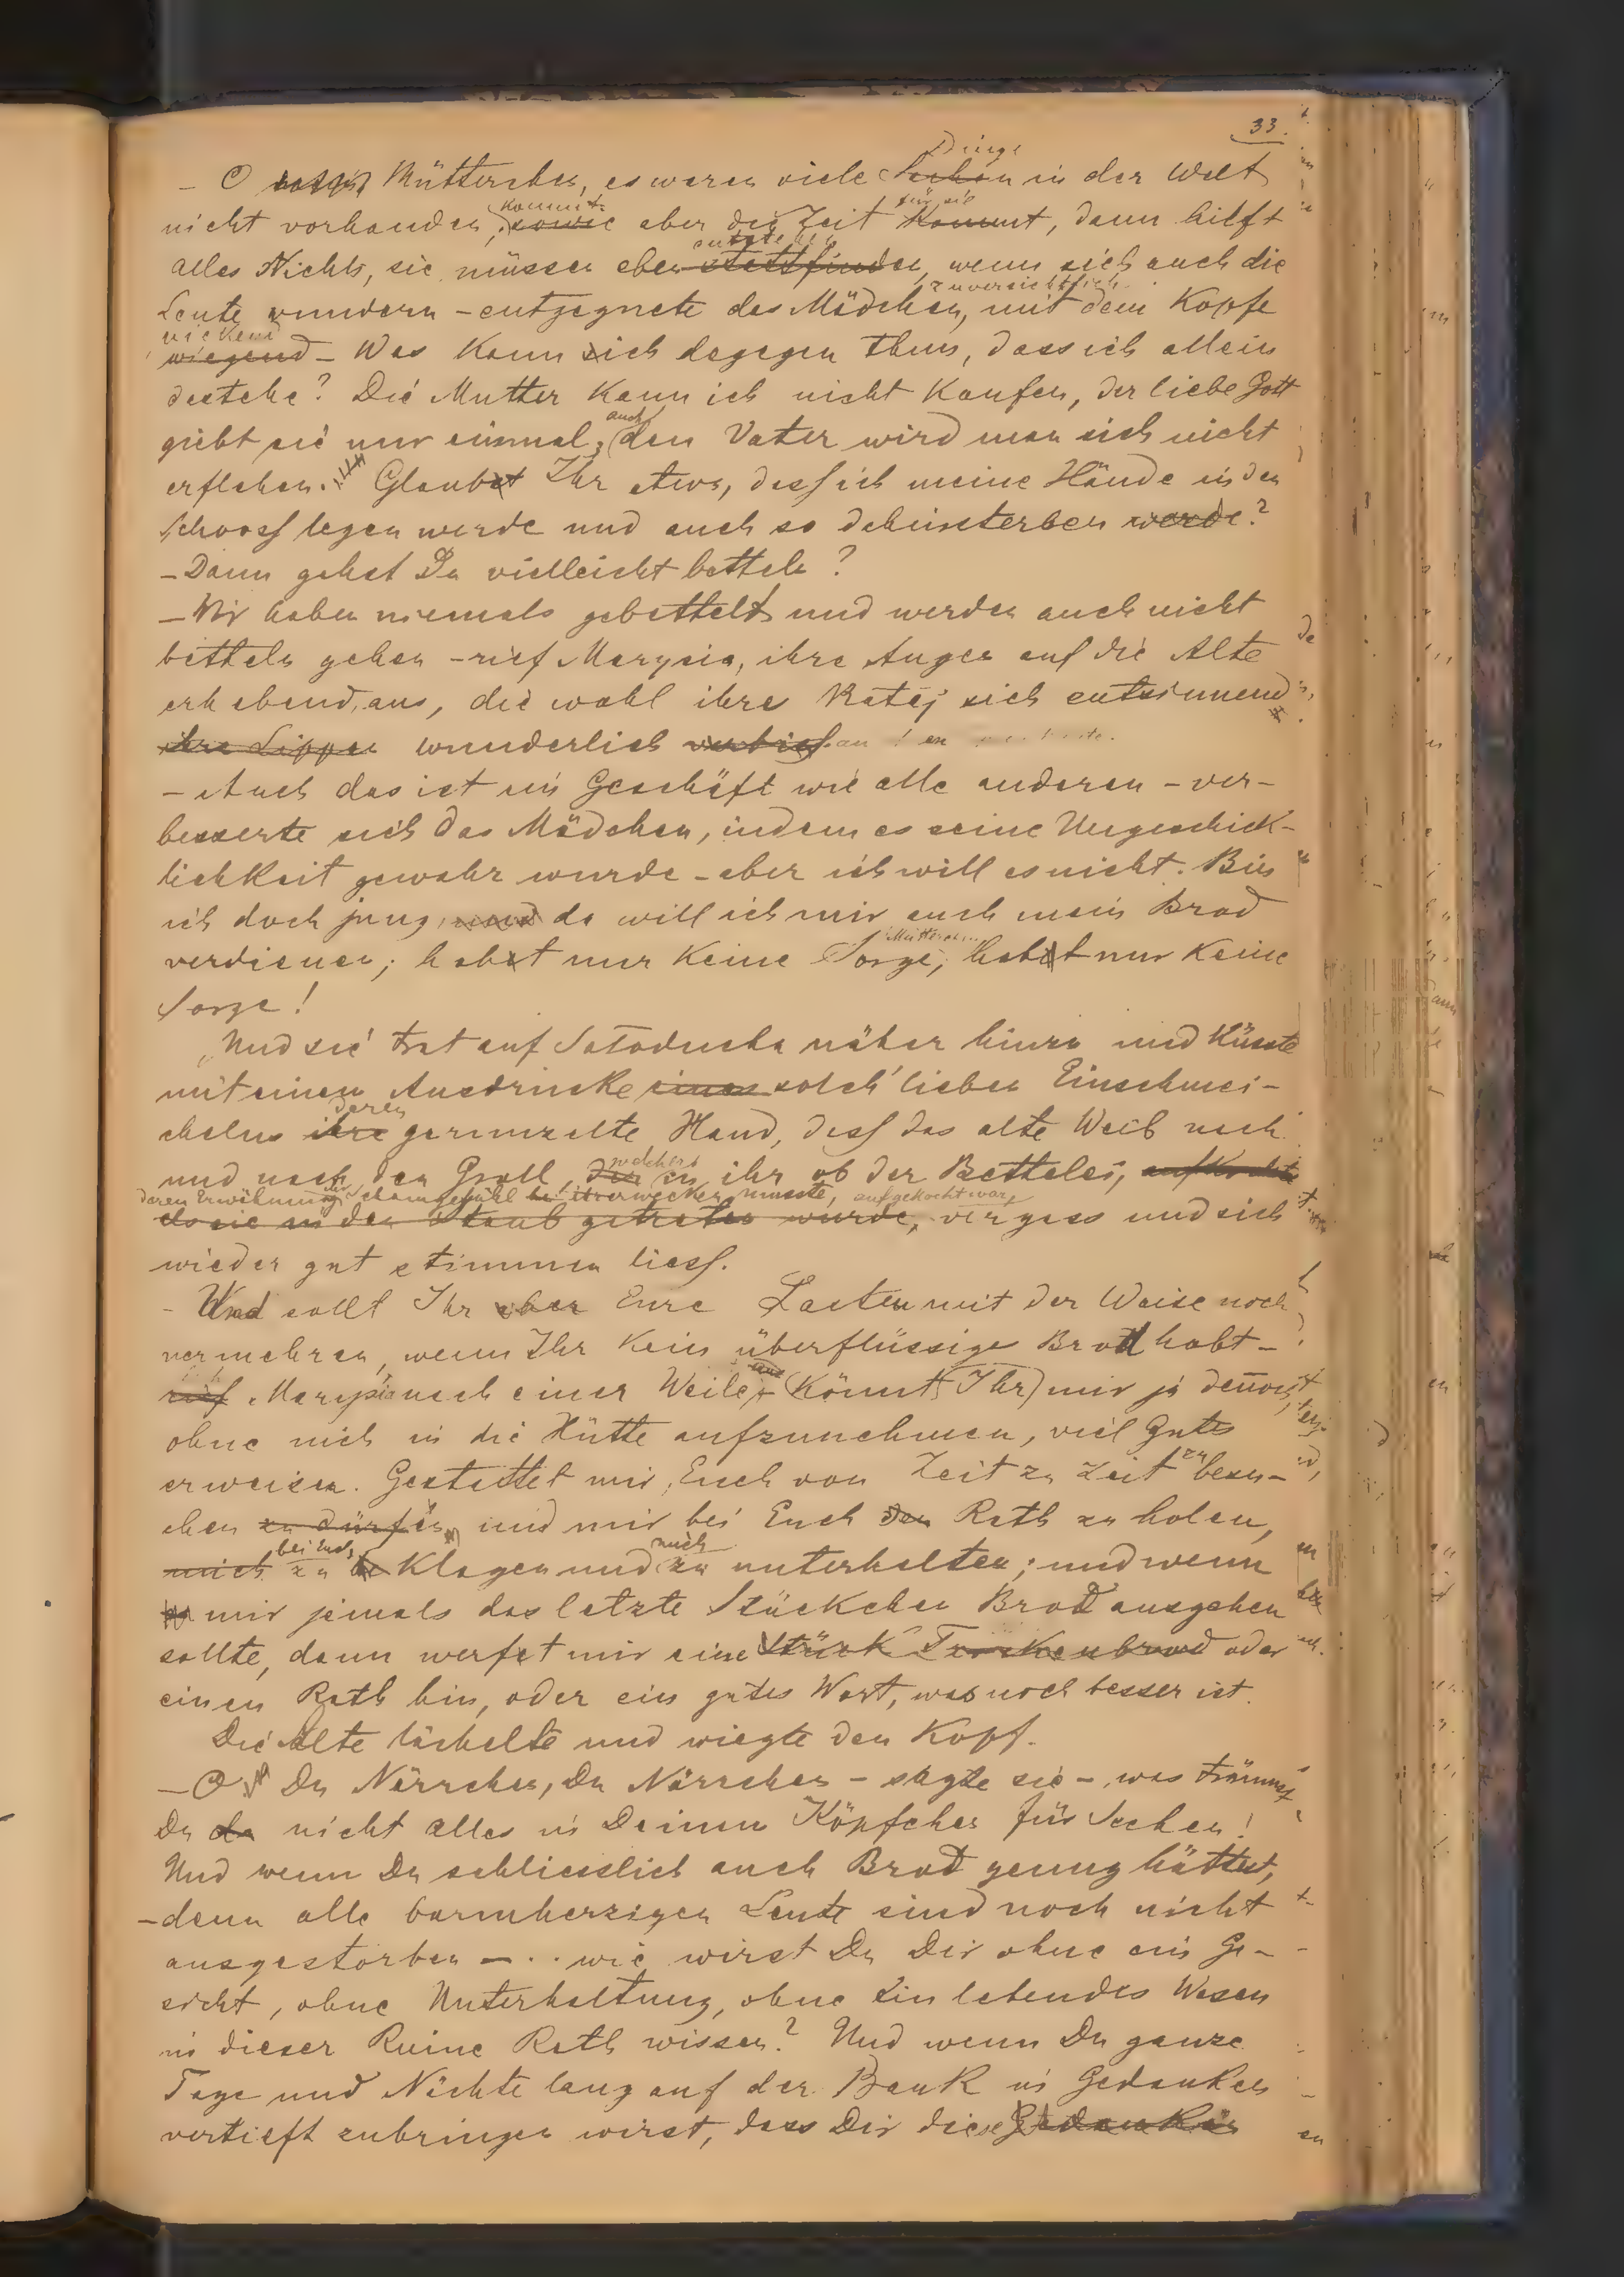 33.
Dinge
- O Mütterchen, es waren viele Sachen in der Welt
kommt für sie
nicht vorhanden, sowie aber die Zeit kommt, dann hilft
alles Nichts, sie müssen eben stattfinden, wenn sich auch die
zuversichtlich
Leute wundern – entgegnete das Mädchen, mit dem Kopfe
nickend
wiegend – Was kann ich dagegen thun, dass ich allein
dastehe? Die Mutter kann ich nicht kaufen, der liebe Gott
auch
giebt sie nur einmal, den Vater wird man sich nicht
erflehen. Glaubet Ihr etwa, dass ich meine Hände in den
Schooss legen werde und auch so dahinsterben werde?
– Dann gehst Du vielleicht betteln?
– Wir haben niemals gebettelt und werden auch nicht
betteln gehen – rief Marysia, ihre Augen auf die Alte
erhebend, aus, die wohl ihres Rates sich entsinnend
ihre Lippen wunderlich verbiss
– Auch das ist ein Geschäft wie alle anderen – ver-
besserte sich das Mädchen, indem es seine Ungeschick-
lichkeit gewahr wurde – aber ich will es nicht. Bin
ich doch jung, und da will ich mir auch mein Brod
Mütterchen
verdienen; habet nur keine Sorge, habet nur keine
Sorge!
Und sie trat auf Soloducha näher hinzu und küsste
mit einem Ausdrucke eines solch' lieben Einschmei-
deren
chelns ihre gerunzelte Hand, dass das alte Weib nach
welcher
und nach den Groll, der in ihr ob der Bettelei, aufkochte
deren Erwähnung Schamgefühl erwecken musste, aufgekocht war,
als sie in den Staub getreten wurde, vergass und sich
wieder gut stimmen liess.
- Und sollt Ihr aber Eure Lasten mit der Waise noch
vermehren, wenn Ihr kein überflüssiges Brod habt –
rief Marysia nach einer Weile – Könnt Ihr mir ja dennoch,
ohne mich in die Hütte aufzunehmen, viel Gutes
zu
erweisen. Gestattet mir, Euch von Zeit zu Zeit besu-
chen zu dürfen, und mir bei Euch den Rath zu holen,
bei Euch mich
mich zu klagen und zu unterhalten; und wenn
mir jemals das letzte Stückchen Brod ausgehen
sollte, dann werfet mir eine Stück Trockenbrod oder
einen Rath hin, oder ein gutes Wort, was noch besser ist.
Die Alte lächelte und wiegte den Kopf.
– O Du Närrchen, Du Närrchen – sagte sie –, was träumst
Du da nicht alles in Deinem Köpfchen für Sachen!
Und wenn Du schliesslich auch Brod genug hättest,
– denn alle barmherzigen Leute sind noch nicht
ausgestorben – . . wie wirst Du Dir ohne ein Ge-
sicht, ohne Unterhaltung, ohne ein lebendes Wesen
in dieser Ruine Rath wissen? Und wenn Du ganze
Tage und Nächte lang auf der Bank in Gedanken
vertieft zubringen wirst, dass Dir diese Gedanken